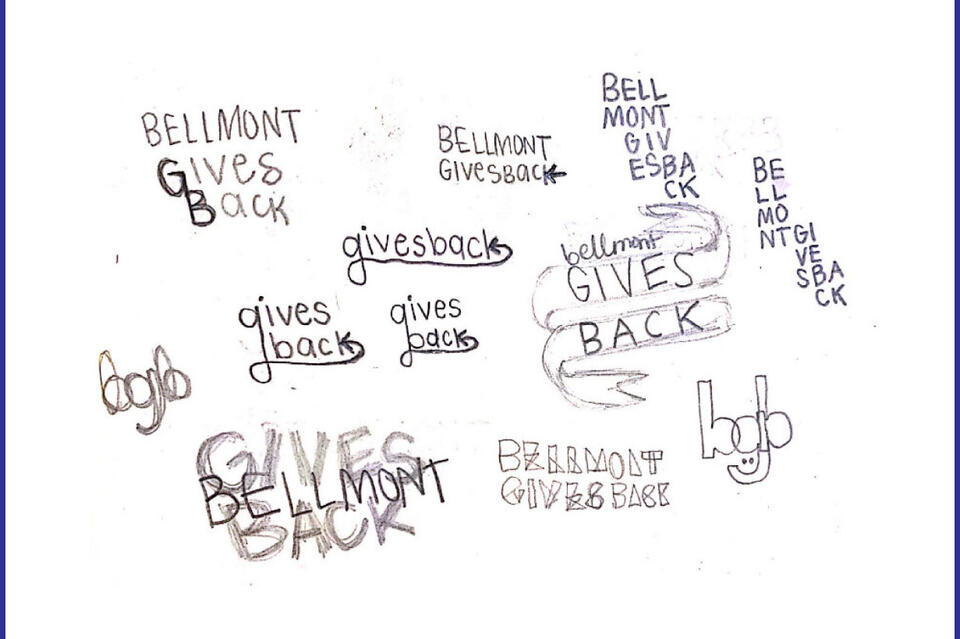 BELLMONT
GIVES
BACK
BELLMONT
GIVESBACK
BELL
MONT
GIV
ESBA
CK
BE
LL
MO
NTGI
VE
SBA
CK
givesback
bellmont
GIVES
BACK
gives
back
gives
back
bgb
bgb
GIVES
BELLMONT
BACK
BELLMONT
GIVES BACK